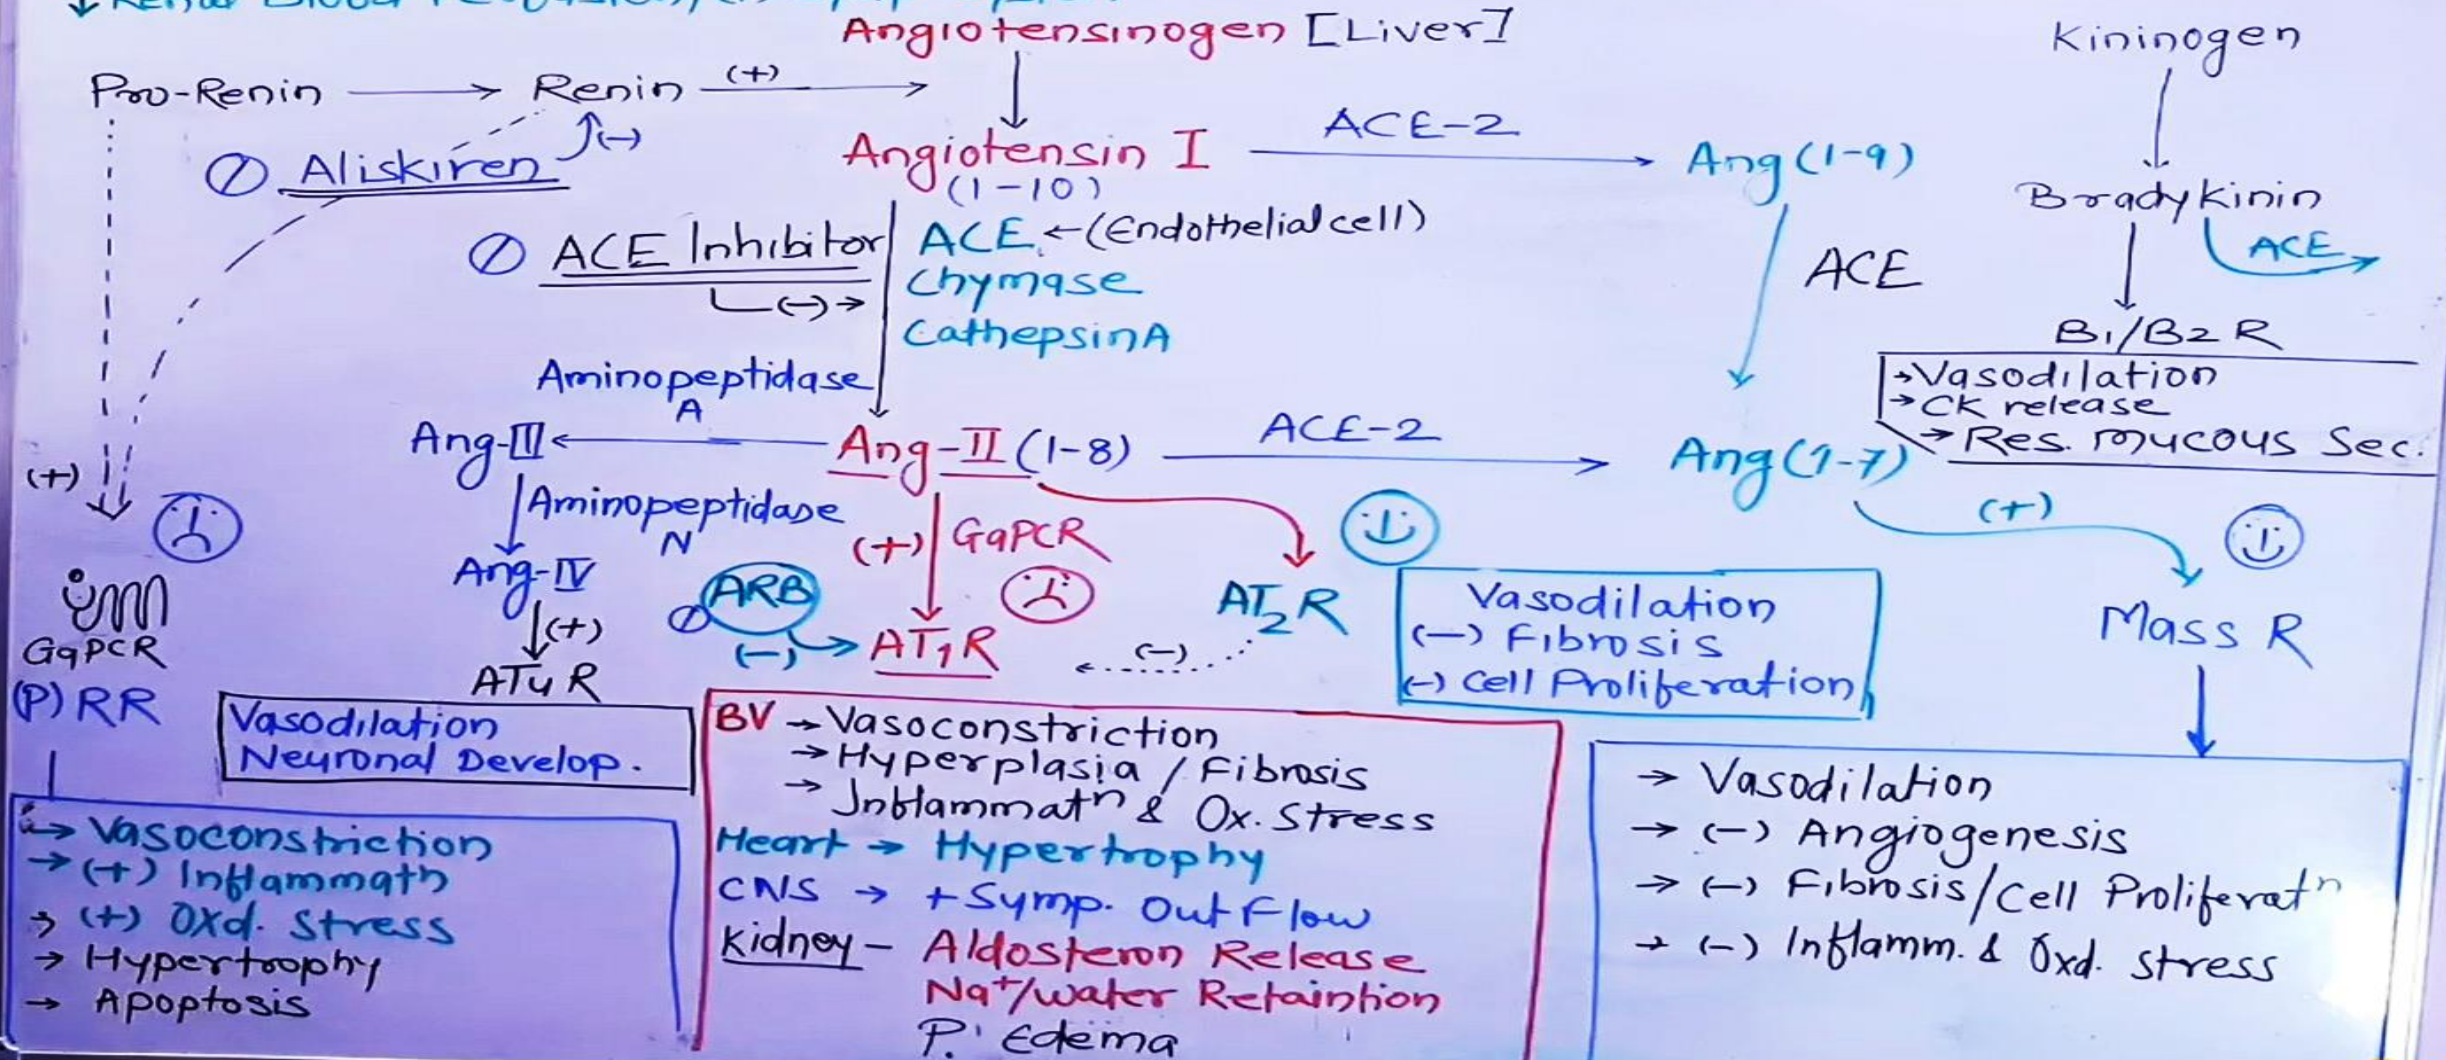 ↓ Renal Blood
Angiotensinogen [Liver]
Kininogen
Pro-Renin → Renin (+) →
ACE-2
(-)
① Aliskiren
Angiotensin I
(1-10)
Ang (1-9)
Bradykinin
① ACE Inhibitor
(-) →
ACE ← (Endothelial cell)
Chymase
Cathepsin A
ACE
ACE
B1/B2 R
→ Vasodilation
→ CK release
→ Res. mucous Sec.
Aminopeptidase
A
Ang-III ← Ang-II (1-8)
ACE-2
Ang (1-7)
(+)
Aminopeptidase
N
(+)
GqPCR
(+)
Ang-IV
ARB
(-)
AT1R
AT2R
(-)
Vasodilation
(-) Fibrosis
(-) Cell Proliferation
Mass R
GqPCR
(P) RR
(+)
AT4 R
Vasodilation
Neuronal Develop.
→ Vasoconstriction
→ (+) Inflammatn
→ (+) Oxd. Stress
→ Hypertrophy
→ Apoptosis
BV → Vasoconstriction
→ Hyperplasia / Fibrosis
→ Inflammatn & Ox. Stress
Heart → Hypertrophy
CNS → + Symp. Out Flow
Kidney - Aldosteron Release
Na+/water Retaintion
P. Edema
→ Vasodilation
→ (-) Angiogenesis
→ (-) Fibrosis/Cell Proliferatn
→ (-) Inflamm. & Oxd. stress